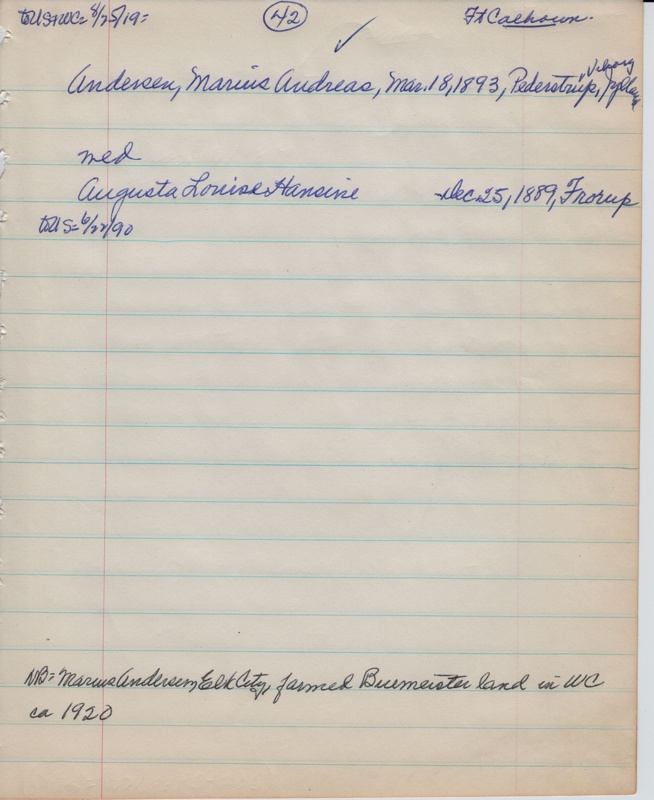 to US+WC= 8/25/19= 42 Ft Calhoun.
✓
Viborg
Andersen, Marius Andreas, Mar. 18, 1893, Pederstrup,
med
Augusta Louise Hansine Dec. 25, 1889, Frorup
to US= 6/22/90
NB= Marius Andersen, Elk City, farmed Buemeister land in WC
ca 1920